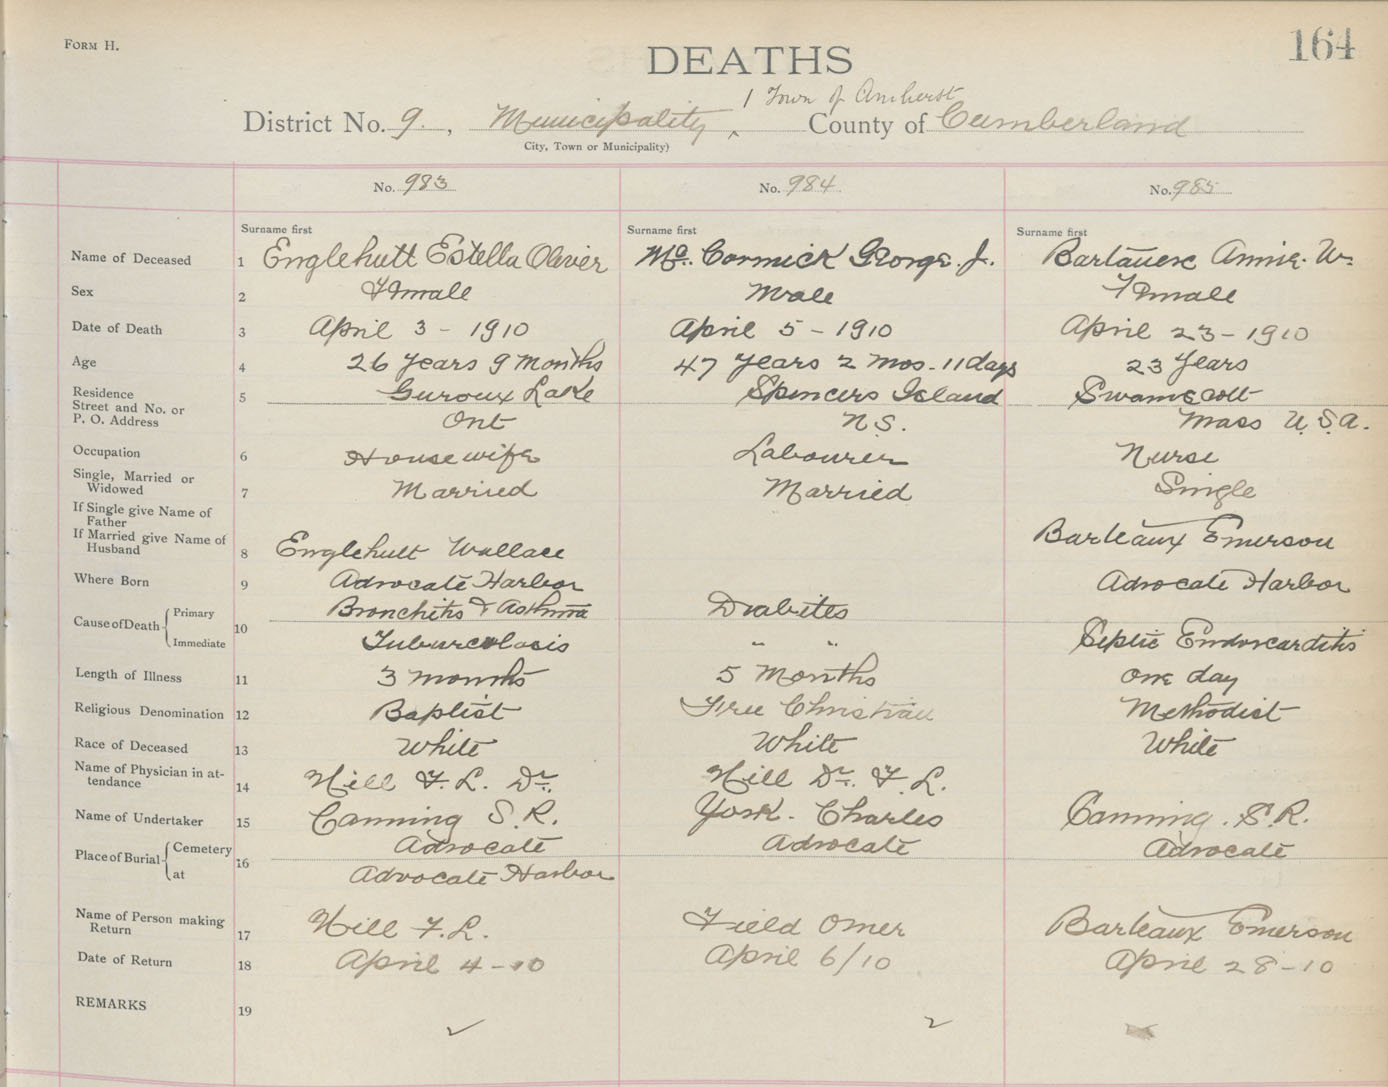 FORM H.
164
DEATHS
1 Town of Amherst
District No. 9. , Municipality ^ County of Cumberland
City, Town or Municipality)
No. 983 No. 984 No. 985
Surname first Surname first Surname first
Name of Deceased 1 Englehutt Estella Oliver McCormick George. J. Bartauex Annie. W.
Sex 2 Female Male Female
Date of Death 3 April 3 - 1910 April 5 - 1910 April 23 - 1910
Age 4 26 years 9 months 47 years 2 mos. 11 days 23 years
Residence
Street and No. or
P. O. Address 5 Guroux Lake Spencers Island Swamscott
Ont N.S. Mass U.S.A.
Occupation 6 Housewife Labourer Nurse
Single, Married or
Widowed 7 Married Married Single
If Single give Name of
Father
If Married give Name of
Husband 8 Englehutt Wallace Barteaux Emerson
Where Born 9 Advocate Harbor Advocate Harbor
Cause of Death { Primary Bronchitis & Asthma Diabites
10
Immediate Tuburcolosis " " Septic Endorcarditis
Length of Illness 11 3 months 5 Months one day
Religious Denomination 12 Baptist Free Christian Methodist
Race of Deceased 13 White White White
Name of Physician in at-
tendance 14 Hill F. L. Dr. Hill Dr. F. L.
Name of Undertaker 15 Canning S. R. York. Charles Canning. S. R.
Place of Burial { Cemetery 16 Advocate Advocate Advocate
at Advocate Harbor
Name of Person making
Return 17 Hill F. L. Field Omer Barteaux Emerson
Date of Return 18 April 4 - 10 April 6/10 April 28 - 10
REMARKS 19